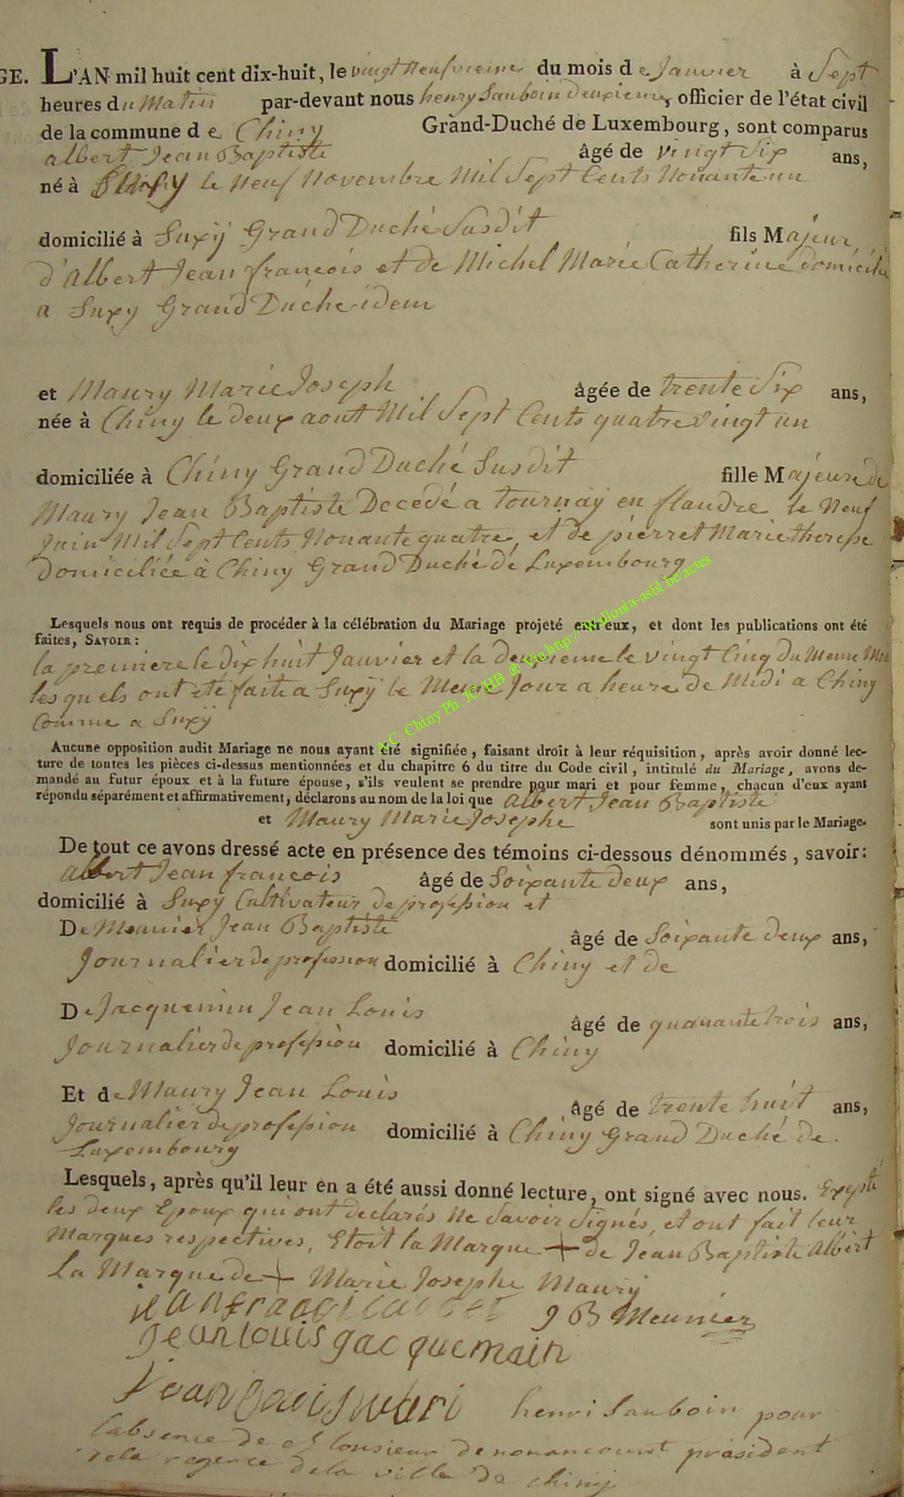 GE. L'AN mil huit cent dix-huit, le vingt Neufvieme du mois de Janvier à Sept
heures du Matin par-devant nous henry Sauboin officier de l'état civil
de la commune de Chiny Grand-Duché de Luxembourg, sont comparus
albert Jean Baptiste âgé de vingt Six ans,
né à Suxy le Neuf Novembre Mil Sept Cents Nonante un
domicilié à Suxÿ Grand Duché Susdit fils Majeur
d'albert Jean françois et de Michel Marie Catherine domicilié
a Suxy Grand Duché idem
et Maury Marie Joseph âgée de trente Six ans,
née à Chiny le deux aout Mil Sept Cents quatre vingt un
domiciliée à Chiny Grand Duché Susdit fille Majeure de
Maury Jean Baptiste Decédé a tournay en flandre le Neuf
Juin Mil Sept Cents Nonante quatre, et de pierret Marie therese
Domiciliée à Chiny Grand Duché de Luxembourg
Lesquels nous ont requis de procéder à la célébration du Mariage projeté entr'eux, et dont les publications ont été
faites, SAVOIR :
la premiere le dix huit Janvier et la deuxieme le vingt Cinq du Meme Mois
lesquels ont été faite a Suxÿ le Meme Jour a heure de Midi a Chiny
Comme a Suxÿ
Aucune opposition audit Mariage ne nous ayant été signifiée, faisant droit à leur réquisition, après avoir donné lec-
ture de toutes les pièces ci-dessus mentionnées et du chapitre 6 du titre du Code civil, intitulé du Mariage, avons de-
mandé au futur époux et à la future épouse, s'ils veulent se prendre pour mari et pour femme, chacun d'eux ayant
répondu séparément et affirmativement, déclarons au nom de la loi que albert Jean Baptiste
et Maury Marie Josephe sont unis par le Mariage.
De tout ce avons dressé acte en présence des témoins ci-dessous dénommés, savoir :
albert Jean françois âgé de Soixante deux ans,
domicilié à Suxy Cultivateur de profession et
De Meunier Jean Baptiste âgé de Soixante deux ans,
Journalier de profession domicilié à Chiny et de
De Jacquemin Jean Louis âgé de quarante trois ans,
Journalier de profession domicilié à Chiny
Et de Maury Jean Louis âgé de trente huit ans,
Journalier de profession domicilié à Chiny Grand Duché de
Luxembourg
Lesquels, après qu'il leur en a été aussi donné lecture, ont signé avec nous. Excepté
les deux Epoux qui ont declarés Ne Savoir Signés, et ont fait leur
Marques respectives, Etoit la Marque + de Jean Baptiste Albert
La Marque de + Marie Josephe Maury
J B Meunier
Jean louis gacquemain
henri Sauboin pour
l'absence de Monsieur de nonancourt président
de la regence de la ville de chiny
A.C. Chiny Ph. JC HB @ Via http://wallonia-asbl.be/actes